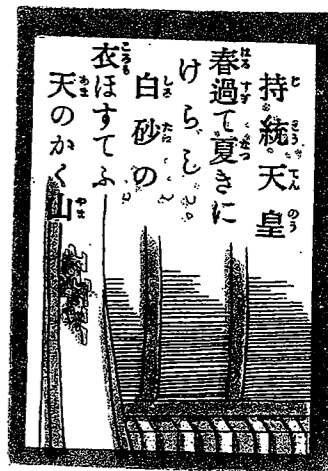 持統天皇
春過て夏きに
けらし
白砂の
衣ほすてふ
天のかく山